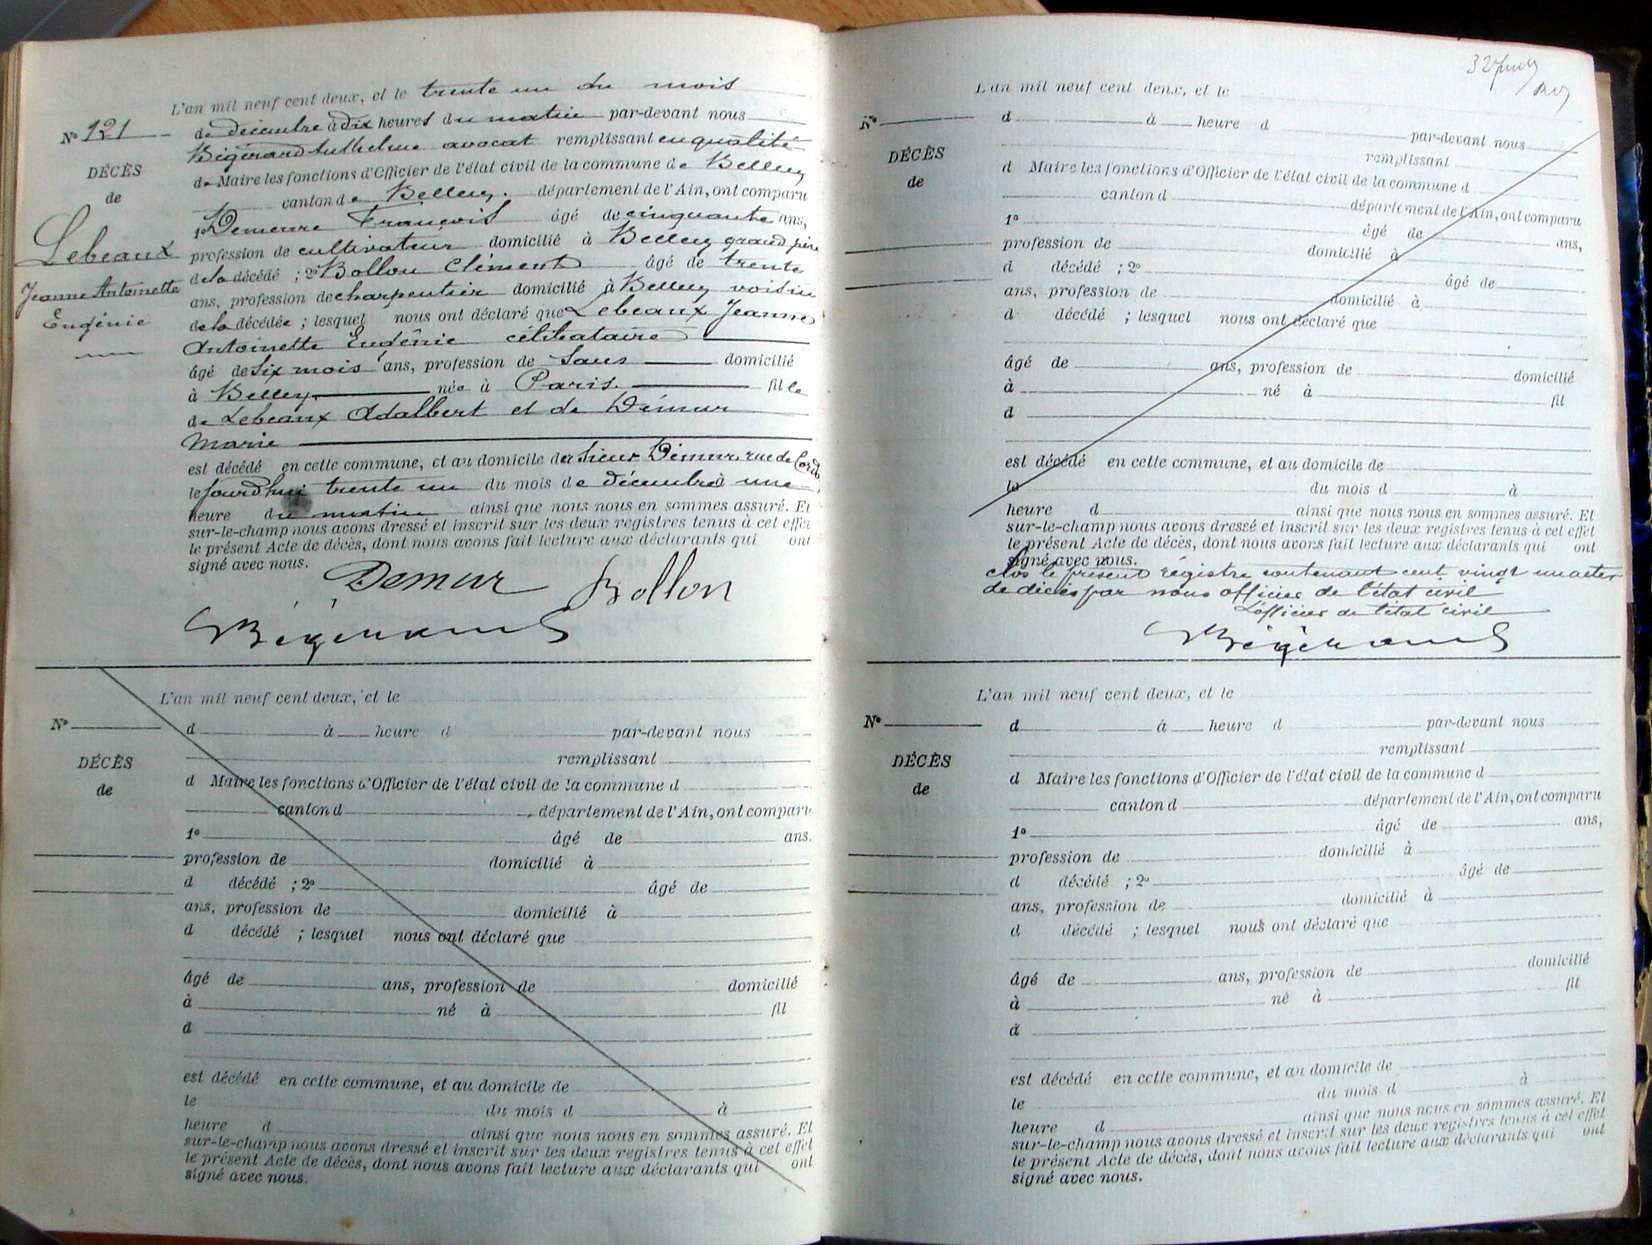 L'an mil neuf cent deux, et le trente un du mois
N° 121
de décembre à dix heures du matin par-devant nous
Bégerand Anthelme avocat remplissant en qualité
DÉCÈS
de Maire les fonctions d'Officier de l'état civil de la commune de Belley
de
canton de Belley. département de l'Ain, ont comparu
1° Demeure François âgé de cinquante ans,
Lebeaux
profession de cultivateur domicilié à Belley grand père
de la décédé ; 2° Bollon Clément âgé de trente
Jeanne Antoinette
ans, profession de charpentier domicilié à Belley voisin
Eugénie
de la décédée ; lesquel nous ont déclaré que Lebeaux Jeanne
Antoinette Eugénie célibataire
âgé de six mois ans, profession de Sans domicilié
à Belley née à Paris. fille
de Lebeaux Adalbert et de Démur
Marie
est décédé en cette commune, et au domicile du sieur Démur, rue de
le jourd'hui trente un du mois de décembre à une
heure du matin ainsi que nous nous en sommes assuré. Et
sur-le-champ nous avons dressé et inscrit sur les deux registres tenus à cet effet
le présent Acte de décès, dont nous avons fait lecture aux déclarants qui ont
signé avec nous.
Demur Bollon
Bégerand
L'an mil neuf cent deux, et le
N°
d à heure d par-devant nous
remplissant
DÉCÈS
d Maire les fonctions d'Officier de l'état civil de la commune d
de
canton d département de l'Ain, ont comparu
1° âgé de ans.
profession de domicilié à
d décédé ; 2° âgé de
ans, profession de domicilié à
d décédé ; lesquel nous ont déclaré que
âgé de ans, profession de domicilié
à né à fil
d
est décédé en cette commune, et au domicile de
le du mois d à
heure d ainsi que nous nous en sommes assuré. Et
sur-le-champ nous avons dressé et inscrit sur les deux registres tenus à cet effet
le présent Acte de décès, dont nous avons fait lecture aux déclarants qui ont
signé avec nous.
L'an mil neuf cent deux, et le
N°
d à heure d par-devant nous
remplissant
DÉCÈS
d Maire les fonctions d'Officier de l'état civil de la commune d
de
canton d département de l'Ain, ont comparu
1° âgé de ans,
profession de domicilié à
d décédé ; 2° âgé de
ans, profession de domicilié à
d décédé ; lesquel nous ont déclaré que
âgé de ans, profession de domicilié
à né à fil
d
est décédé en cette commune, et au domicile de
le du mois d à
heure d ainsi que nous nous en sommes assuré. Et
sur-le-champ nous avons dressé et inscrit sur les deux registres tenus à cet effet
le présent Acte de décès, dont nous avons fait lecture aux déclarants qui ont
signé avec nous.
clos le présent registre contenant cent vingt un actes
de décès par nous officier de l'état civil
L'officier de l'état civil
Bégerand
L'an mil neuf cent deux, et le
N°
d à heure d par-devant nous
remplissant
DÉCÈS
d Maire les fonctions d'Officier de l'état civil de la commune d
de
canton d département de l'Ain, ont comparu
1° âgé de ans,
profession de domicilié à
d décédé ; 2° âgé de
ans, profession de domicilié à
d décédé ; lesquel nous ont déclaré que
âgé de ans, profession de domicilié
à né à fil
d
est décédé en cette commune, et au domicile de
le du mois d à
heure d ainsi que nous nous en sommes assuré. Et
sur-le-champ nous avons dressé et inscrit sur les deux registres tenus à cet effet
le présent Acte de décès, dont nous avons fait lecture aux déclarants qui ont
signé avec nous.